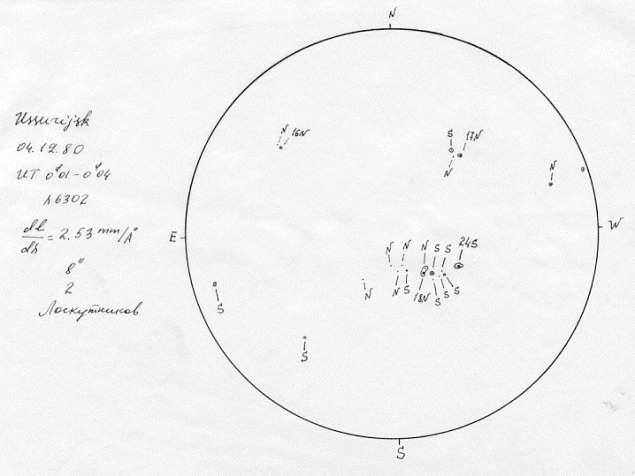 Ussurijsk
04.12.80
UT 0ʰ01 - 0ʰ04
λ6302
dl/dλ = 2.53 mm/Å
8"
2
Лоскутников
N
N 16N
S 17N
N
N
E
W
N N N S S 24S
N N S 18N S S S
S
S
S